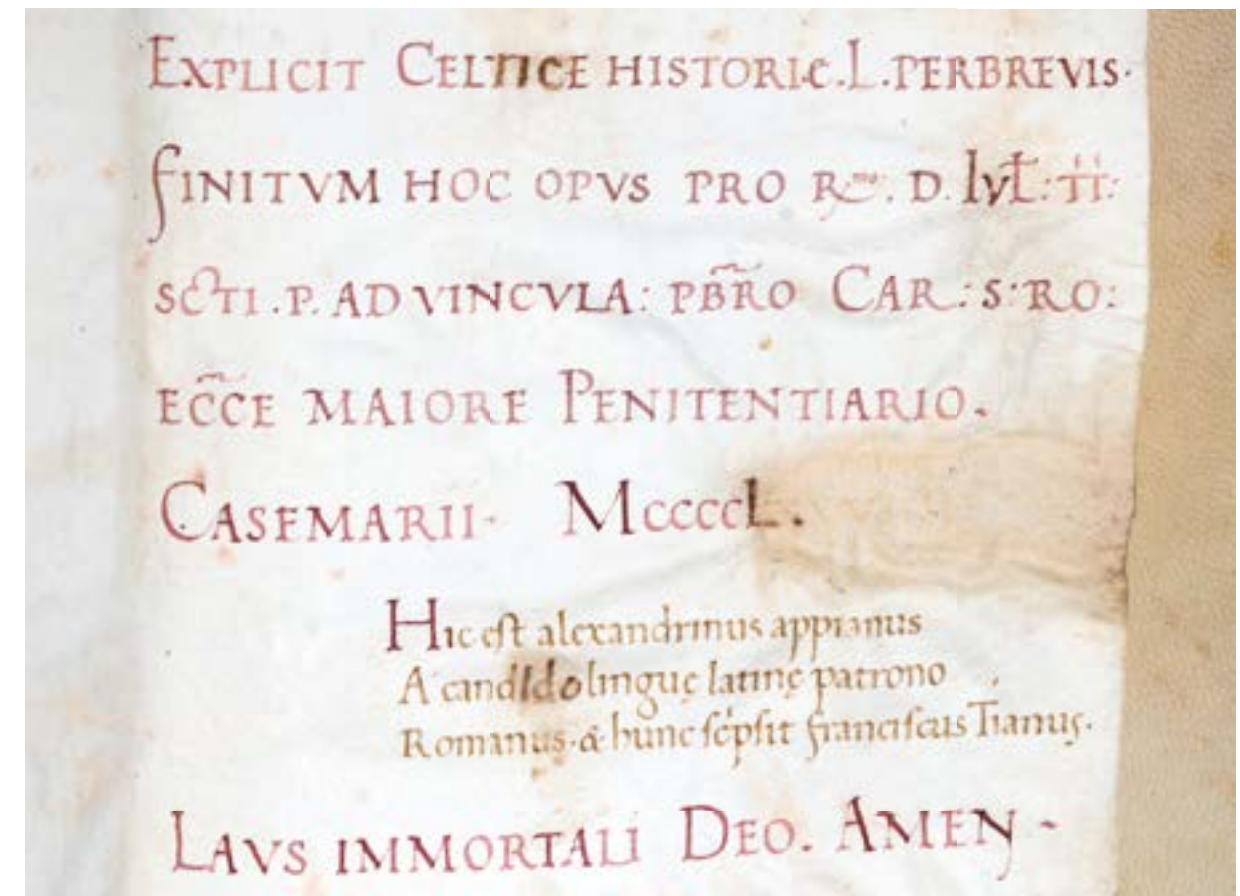 EXPLICIT CELTICE HISTORIĘ.L.PERBREVIS.
FINITVM HOC OPVS PRO R̅mo. D.
SC̅TI.P. AD VINCVLA: PB̅RO CAR.: S: RO:
EC̅CE MAIORE PENITENTIARIO.
CASEMARII. MccccL.
Hic est alexandrinus appianus
A candido linguę latinę patrono
Romanus. & hunc sc̓psit franciscus Tianus.
LAVS IMMORTALI DEO. AMEN -